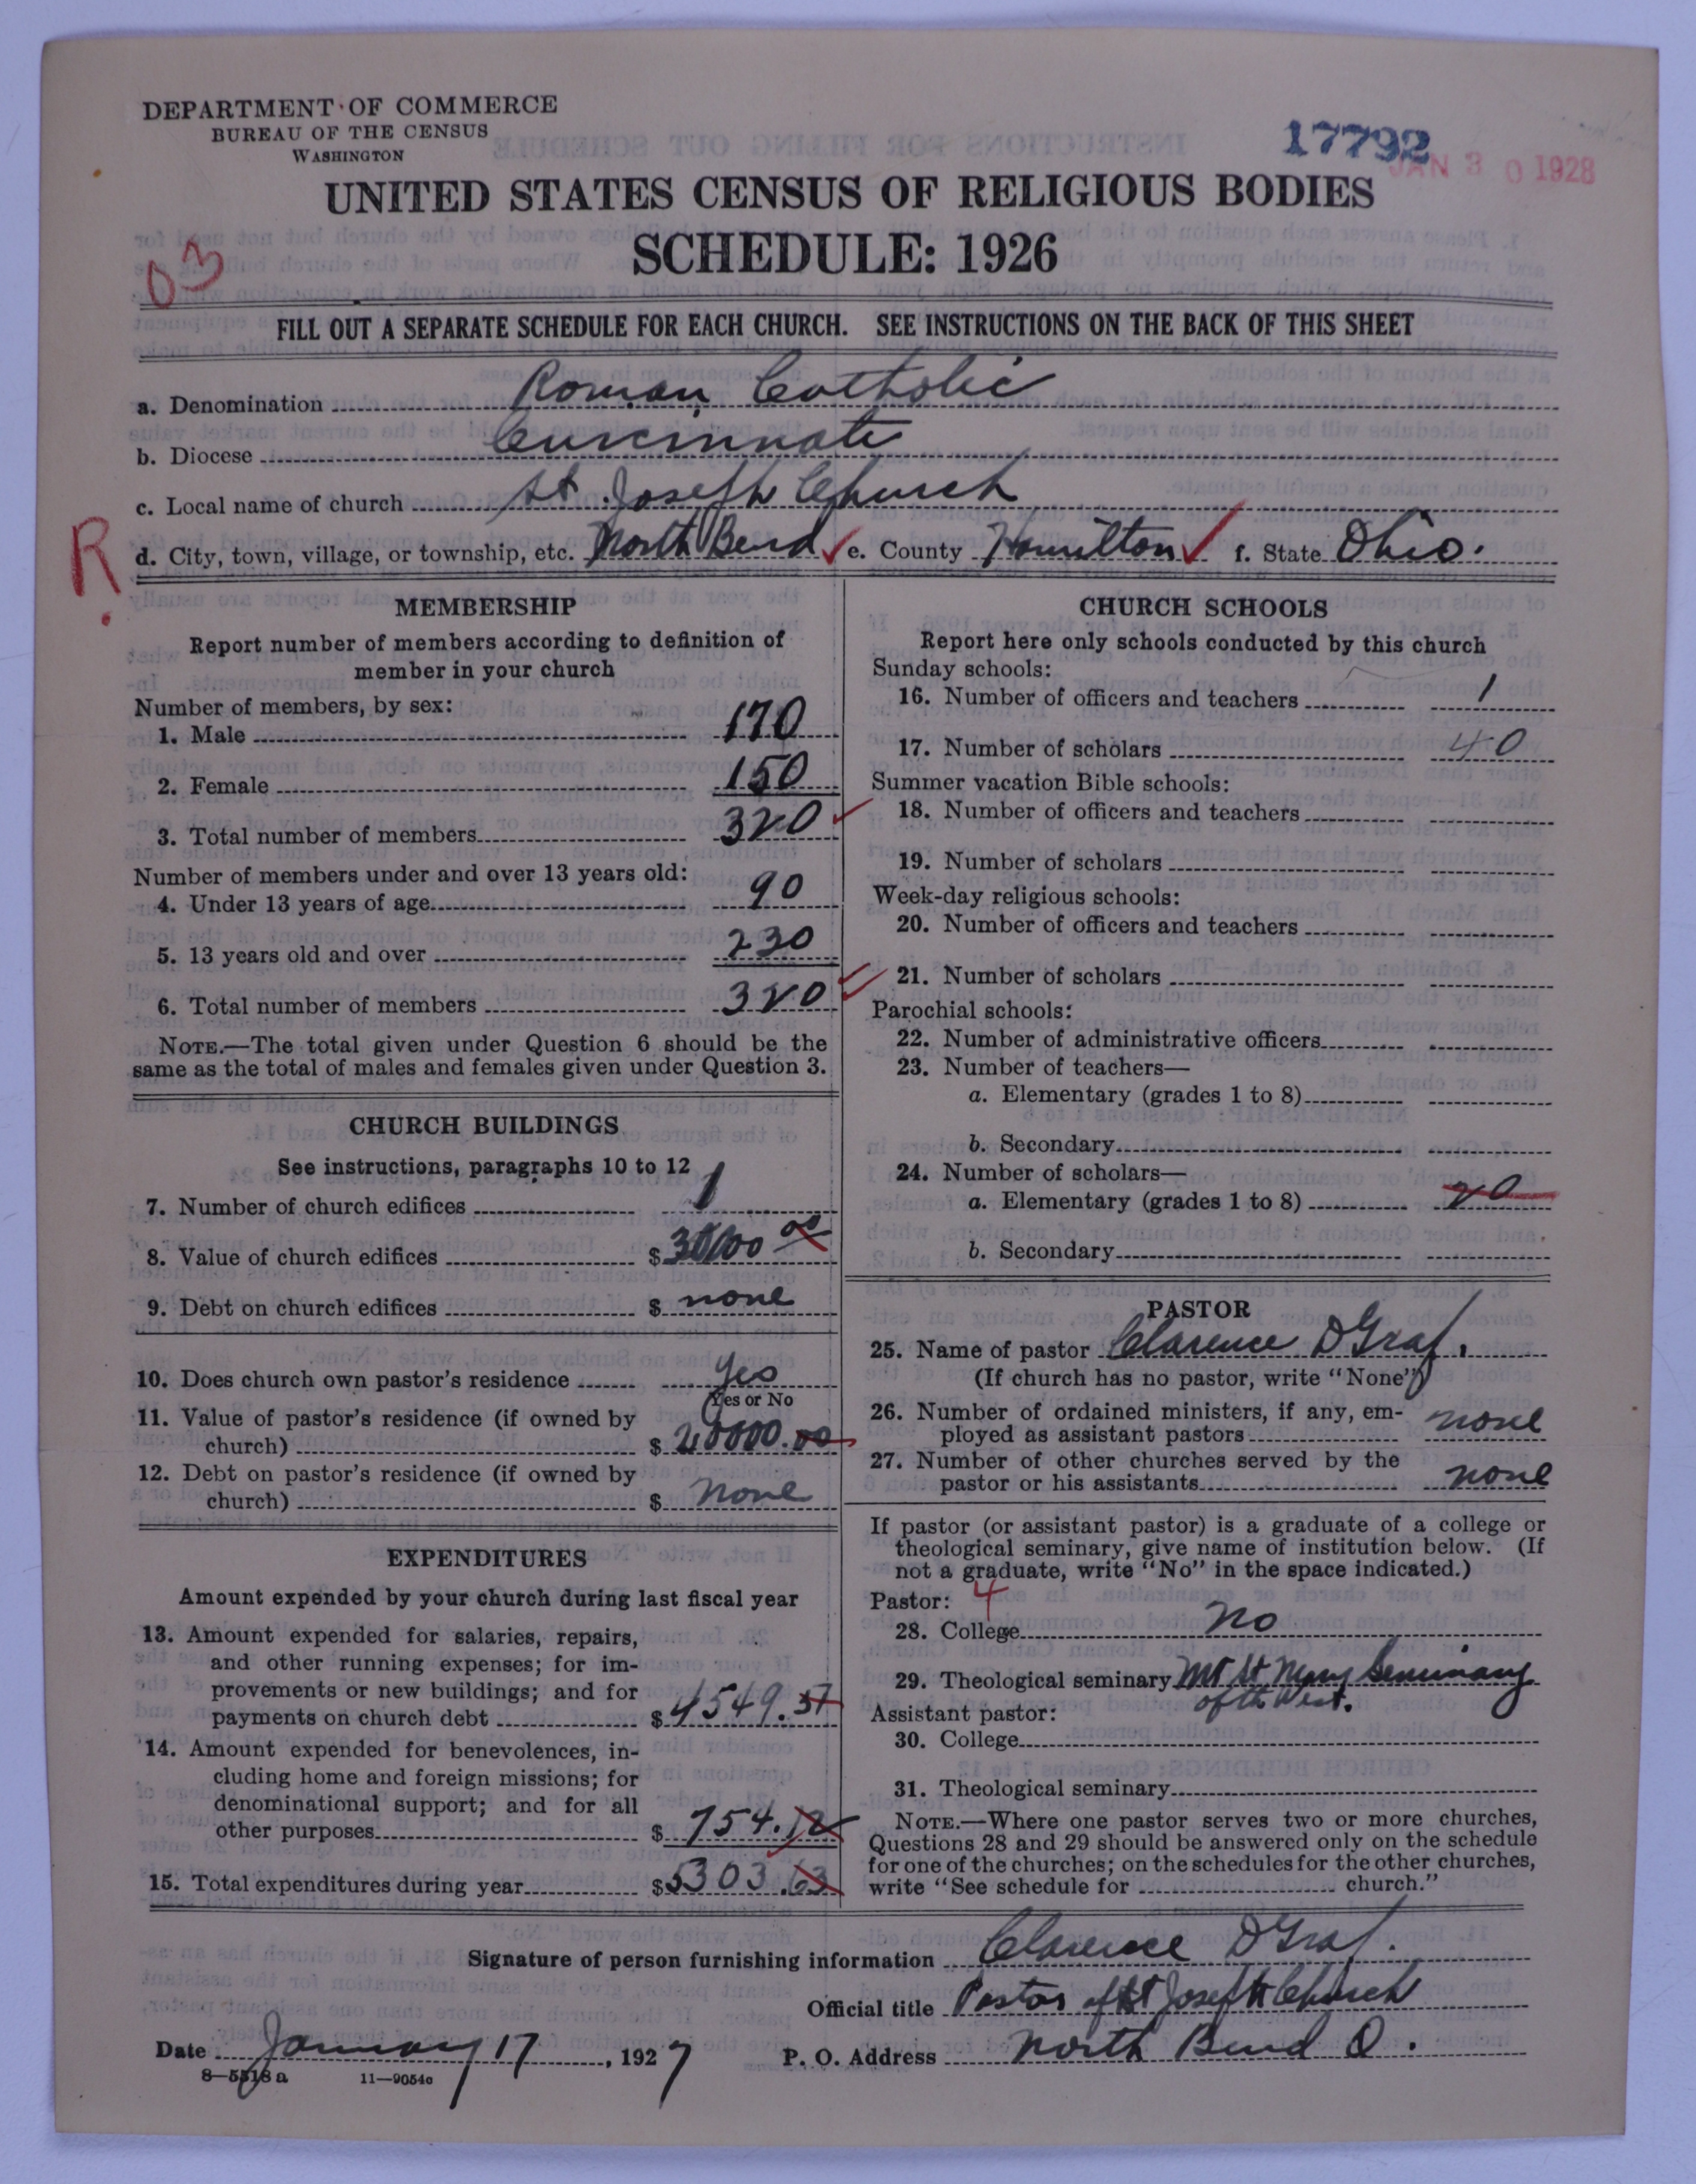 DEPARTMENT OF COMMERCE
BUREAU OF THE CENSUS
WASHINGTON
17792
JAN 30 1928
UNITED STATES CENSUS OF RELIGIOUS BODIES
SCHEDULE: 1926
03
FILL OUT A SEPARATE SCHEDULE FOR EACH CHURCH. SEE INSTRUCTIONS ON THE BACK OF THIS SHEET
a. Denomination Roman Catholic
b. Diocese Cincinnati
c. Local name of church St. Joseph Church
R.
d. City, town, village, or township, etc. North Bend e. County Hamilton f. State Ohio.
MEMBERSHIP
Report number of members according to definition of
member in your church
Number of members, by sex:
1. Male 170
2. Female 150
3. Total number of members 320
Number of members under and over 13 years old:
4. Under 13 years of age 90
5. 13 years old and over 230
6. Total number of members 320
NOTE.—The total given under Question 6 should be the
same as the total of males and females given under Question 3.
CHURCH BUILDINGS
See instructions, paragraphs 10 to 12
7. Number of church edifices 1
8. Value of church edifices $30000 00
9. Debt on church edifices $ none
10. Does church own pastor's residence yes
Yes or No
11. Value of pastor's residence (if owned by
church) $ 20000.00
12. Debt on pastor's residence (if owned by
church) $ None
EXPENDITURES
Amount expended by your church during last fiscal year
13. Amount expended for salaries, repairs,
and other running expenses; for im-
provements or new buildings; and for
payments on church debt $4549.51
14. Amount expended for benevolences, in-
cluding home and foreign missions; for
denominational support; and for all
other purposes $ 754.12
15. Total expenditures during year $5303.63
CHURCH SCHOOLS
Report here only schools conducted by this church
Sunday schools:
16. Number of officers and teachers 1
17. Number of scholars 40
Summer vacation Bible schools:
18. Number of officers and teachers
19. Number of scholars
Week-day religious schools:
20. Number of officers and teachers
21. Number of scholars
Parochial schools:
22. Number of administrative officers
23. Number of teachers—
a. Elementary (grades 1 to 8)
b. Secondary
24. Number of scholars—
a. Elementary (grades 1 to 8) 20
b. Secondary
PASTOR
25. Name of pastor Clarence D Graf.
(If church has no pastor, write "None")
26. Number of ordained ministers, if any, em-
ployed as assistant pastors none
27. Number of other churches served by the
pastor or his assistants none
If pastor (or assistant pastor) is a graduate of a college or
theological seminary, give name of institution below. (If
not a graduate, write "No" in the space indicated.)
Pastor: 4
28. College No
29. Theological seminary Mt St Mary Seminary
of the West.
Assistant pastor:
30. College
31. Theological seminary
NOTE.—Where one pastor serves two or more churches,
Questions 28 and 29 should be answered only on the schedule
for one of the churches; on the schedules for the other churches,
write "See schedule for church."
Signature of person furnishing information Clarence D Graf.
Official title Pastor of St Joseph Church
Date January 17, 1927 P. O. Address North Bend O.
8—5518a 11—9054c